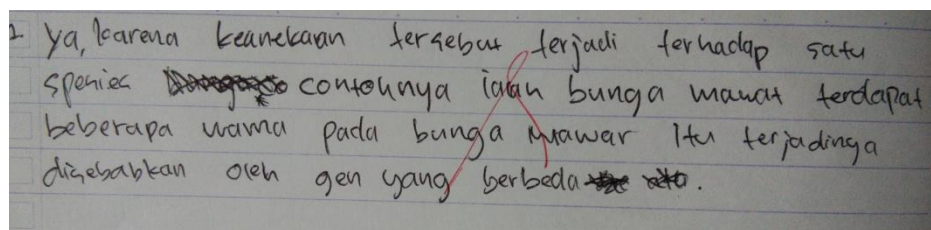 2. Ya, karena keanekaan tersebut terjadi terhadap satu
spesies contohnya ialah bunga mawar terdapat
beberapa warna pada bunga mawar Itu terjadinga
disebabkan oleh gen yang berbeda.